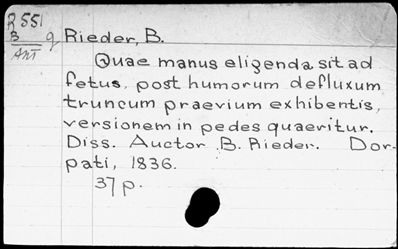 R551
B q Rieder, B.
Ant
Quae manus eligenda sit ad
fetus, post humorum defluxum
truncum praevium exhibentis,
versionem in pedes quaeritur.
Diss. Auctor B. Rieder. Dor-
pati, 1836.
37 p.